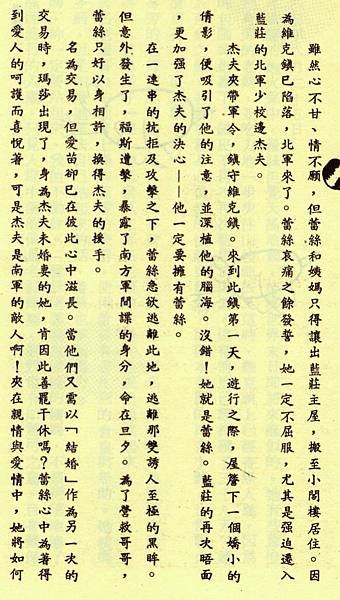 雖然心不甘、情不願，但蕾絲和姨媽只得讓出藍莊主屋，搬至小閣樓居住。因
為維克鎮已陷落，北軍來了。蕾絲哀痛之餘發誓，她一定不屈服，尤其是强迫遷入
藍莊的北軍少校邊杰夫。
杰夫夾帶軍令，鎮守維克鎮。來到此鎮第一天，遊行之際，屋簷下一個嬌小的
倩影，便吸引了他的注意，並深植他的腦海。沒錯！她就是蕾絲。藍莊的再次晤面
，更加强了杰夫的決心——他一定要擁有蕾絲。
在一連串的抗拒及攻擊之下，蕾絲急欲逃離此地，逃離那雙誘人至極的黑眸。
但意外發生了，福斯遭擊，暴露了南方軍間諜的身分，命在旦夕。為了營救哥哥，
蕾絲只好以身相許，換得杰夫的援手。
名為交易，但愛苗卻已在彼此心中滋長。當他們又需以「結婚」作為另一次的
交易時，瑪莎出現了，身為杰夫未婚妻的她，肯因此善罷干休嗎？蕾絲心中為著得
到愛人的呵護而喜悅著，可是杰夫是南軍的敵人啊！夾在親情與愛情中，她將如何